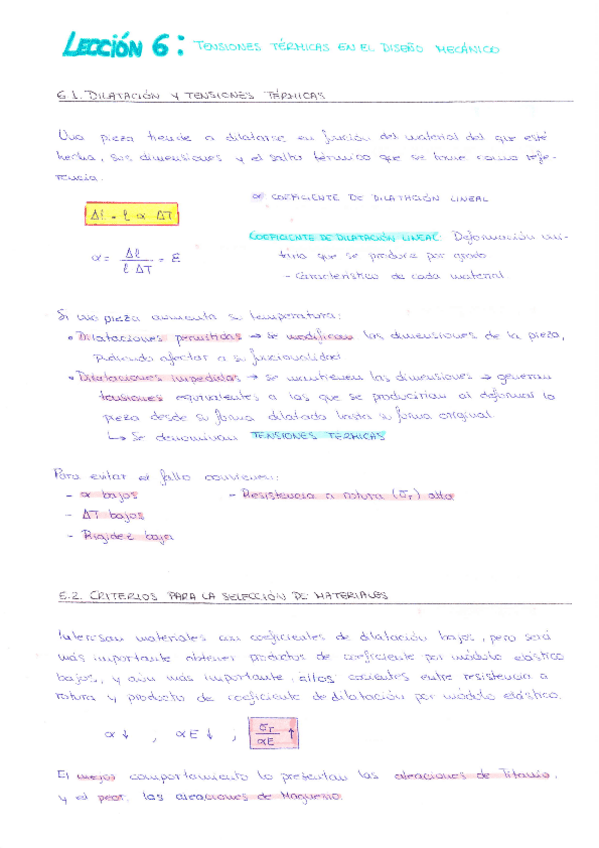 LECCIÓN 6: TENSIONES TÉRMICAS EN EL DISEÑO MECÁNICO
6.1. DILATACIÓN Y TENSIONES TÉRMICAS
Una pieza tiende a dilatarse en función del material del que esté
hecha, sus dimensiones y el salto térmico que se tome como refe-
rencia.
α COEFICIENTE DE DILATACIÓN LINEAL
Δl = l α ΔT
COEFICIENTE DE DILATACIÓN LINEAL: Deformación uni-
taria que se produce por grado
- Característico de cada material
α = Δl / l ΔT = ε
Si una pieza aumenta su temperatura:
• Dilataciones permitidas → se modifican las dimensiones de la pieza,
pudiendo afectar a su funcionalidad
• Dilataciones impedidas → se mantienen las dimensiones → generan
tensiones equivalentes a las que se producirían al deformar la
pieza desde su forma dilatada hasta su forma original.
↳ Se denominan TENSIONES TERMICAS
Para evitar el fallo convienen:
- α bajos
- Resistencia a rotura (σr) alta
- ΔT bajos
- Rigidez baja
6.2. CRITERIOS PARA LA SELECCIÓN DE MATERIALES
Interesan materiales con coeficientes de dilatación bajos, pero será
más importante obtener productos de coeficiente por módulo elástico
bajos, y aún más importante, altos cocientes entre resistencia a
rotura y producto de coeficiente de dilatación por módulo elástico.
α↓ , αE↓ , σr / αE ↑
El mejor comportamiento lo presentan las aleaciones de Titanio,
y el peor, las aleaciones de Magnesio.